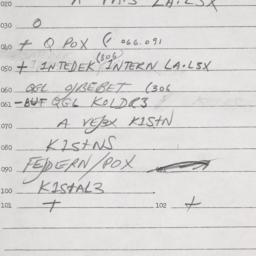 020 A THIS LA.LSX
030 O
040 + Q POX ( 066.091
050 + INTEDEK (506) INTERN LA.LSX
060 QGL O/BEBET (506
061 -BUT QGL KOLDR3
070 A VE/BX KIS+N
080 KIS+NS
090 FE/DERN/POX
100 KIS+AL3
101 + 102 +